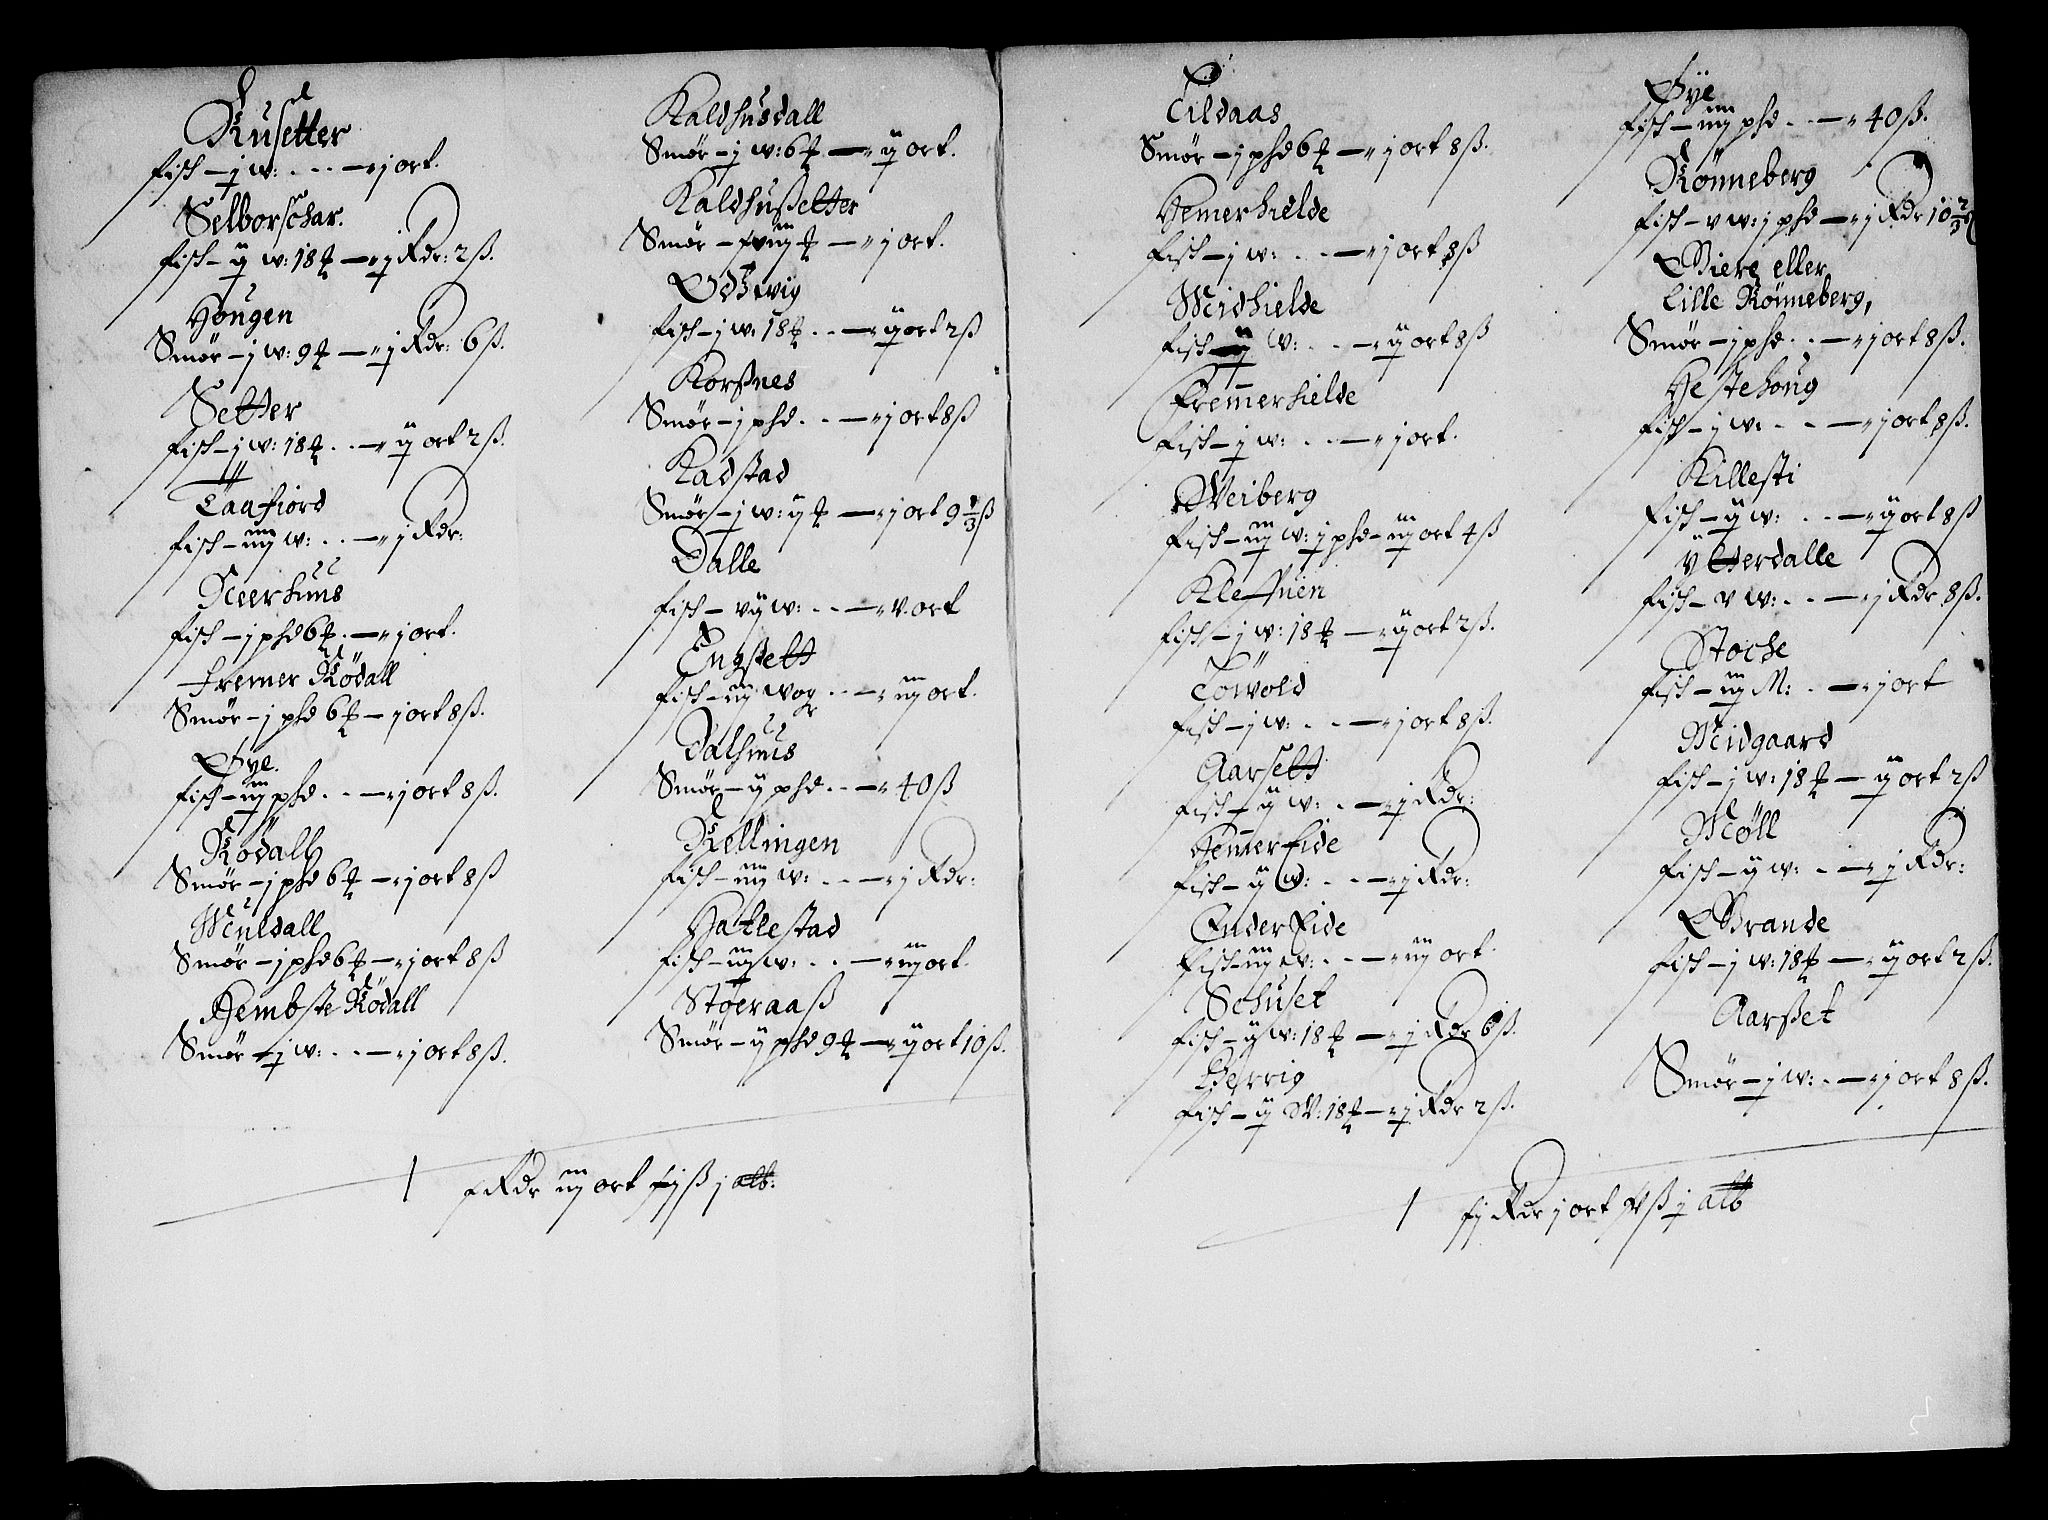 Rusetter
fisch - j w: . . . - " j ort.
Selborschar.
fisch - ij w: 18 ℔ - " j Rdr: 2 ß.
Hougen
Smør - j w: 9 ℔ - " j Rdr: 6 ß.
Setter
fisch - j w: 18 ℔ . . - " ij ort 2 ß.
Taafiord
fisch - iiij w: . . - " j Rdr:
Skeerhuus
fisch - j phd 6 ℔ . - " j ort.
fremer Rödall
Smør - j phd 6 ℔ - j ort 8 ß.
Øye.
fisch - iiij phd . . - " j ort 8 ß.
Rödall
Smør - j phd 6 ℔ - " j ort 8 ß
Muldall
Smør - j phd 6 ℔ - " j ort 8 ß
Hembste Rödall
Smør - j w: . . - " j ort 8 ß.
j Rdr iij ort ß j alb:
Kaldhusdall
Smør - j w: 6 ℔ - " ij ort.
Kaldhußetter
Smør - ℔ - " j ort.
Odtzvig
fisch - j w: 18 ℔ . . - " ij ort 2 ß
Korßnes
Smør - j phd . . - " j ort 8 ß
Kadstad
Smør - j w: ij ℔ - " j ort 9 1/3 ß
Dalle
fisch - vij w: . . - " v ort
Engselt
fisch - iij wog . . - " iij ort.
Dalhuus
Smør - ij phd . . - " 40 ß
Rellingen
fisch - iiij w: . . - " j Rdr:
Hatlestad
fisch - iij w: . . - " iij ort.
Støeraaß
Smør - ij phd 9 ℔ - " ij ort 10 ß.
Lildaas
Smør - j phd 6 ℔ - " j ort 8 ß.
Hemerhielde
fisch - j w: . . - " j ort 8 ß
Midhielde
fisch - ij w: . . - " ij ort 8 ß
Fremmerhielde
fisch - j w: . . - " j ort.
Weiberg
fisch - iij w: j phd - iij ort 4 ß
Kleffuen
fisch - j w: 18 ℔ - " ij ort 2 ß.
Töwold
fisch - j w: . . - " j ort 8 ß.
Aarselt
fisch - ij w: . . - " j Rdr:
Hemmer Eide
fisch - ij w: . . - " j Rdr:
Ender Eide
fisch - iij w: . . - " iij ort.
Schuset
fisch - ij w: 18 ℔ - " j Rdr 6 ß.
Berrig
fisch - ij W: 18 ℔ - " j Rdr 2 ß.
Øye
fisch - iiij phd . . - " 40 ß.
Rönneberg
fisch - v w: j phd - " j Rdr 10 2/3 ß
Biere eller
Lille Rönneberg,
Smør - j phd . . - " j ort 8 ß.
Hestehoug
fisch - j w: . . - " j ort 8 ß.
Killesti
fisch - ij w: . . - " ij ort 8 ß
ÿtterdalle
fisch - v w: . . - " j Rdr 8 ß.
Stoche
fisch - iij M: . - " j ort
Midgaard
fisch - j w: 18 ℔ - ij ort 2 ß
Møll
fisch - ij w: . - " j Rdr:
Brande
fisch - j w: 18 ℔ - " ij ort 2 ß.
Aarßet
Smør - j w: . - " j ort 8 ß.
Rdr j ort ß j alb